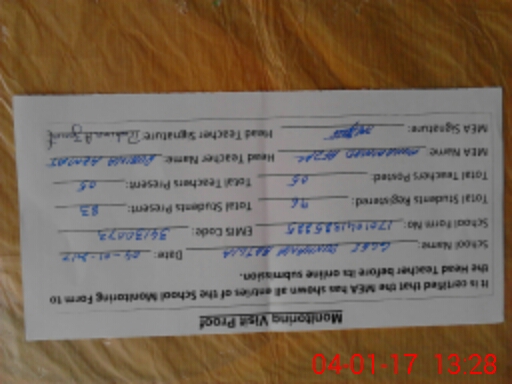 Monitoring Visit Proof
It is certified that the MEA has shown all entries of the School Monitoring Form to
the Head Teacher before its online submission.
School Name: GGES Date: 04-01-2017
School Form No: EMIS Code: 36130073
Total Students Registered: 96 Total Students Present: 83
Total Teachers Posted: 05 Total Teachers Present: 05
MEA Name: MUHAMMAD AFZAL Head Teacher Name: RUBINA
MEA Signature: Head Teacher Signature:
04-01-17 13:28